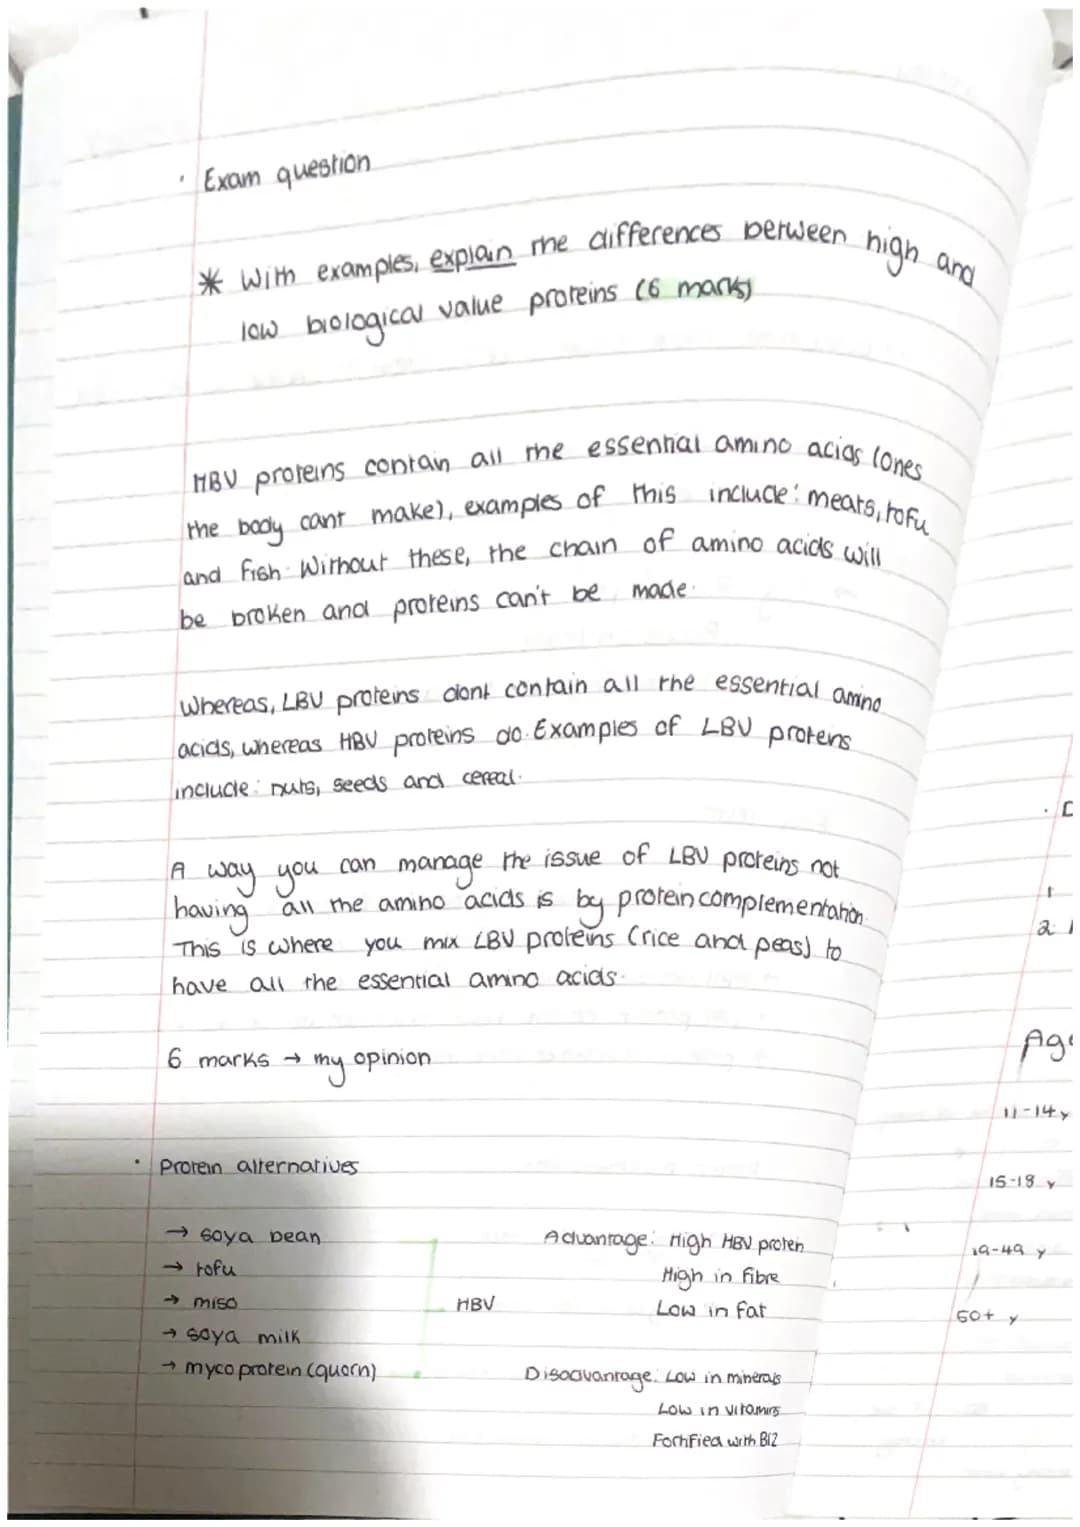 • Exam question
* With examples, explain the differences between high and
low biological value proteins (6 marks)
HBV proteins contain all the essential amino acids (ones
the body cant make), examples of this include: meats, tofu
and fish. Without these, the chain of amino acids will
be broken and proteins can't be made.
Whereas, LBV proteins dont contain all the essential amino
acids, whereas HBV proteins do. Examples of LBV protens
include: nuts, seeds and cereal.
A way you can manage the issue of LBV proteins not
having all the amino acids is by protein complementation.
This is where you mix LBV proteins (rice and peas) to
have all the essential amino acids.
6 marks → my opinion
• Protein alternatives
→ soya bean
→ tofu
→ miso
→ soya milk
→ mycoprotein (quorn)
HBV
Advantage: High HBV proten
High in fibre
Low in fat
Disadvantage: Low in minerals
Low in vitamins
Fortified with B12
1
2
Age
11-14 y
15-18 y
19-49 y
50+ y